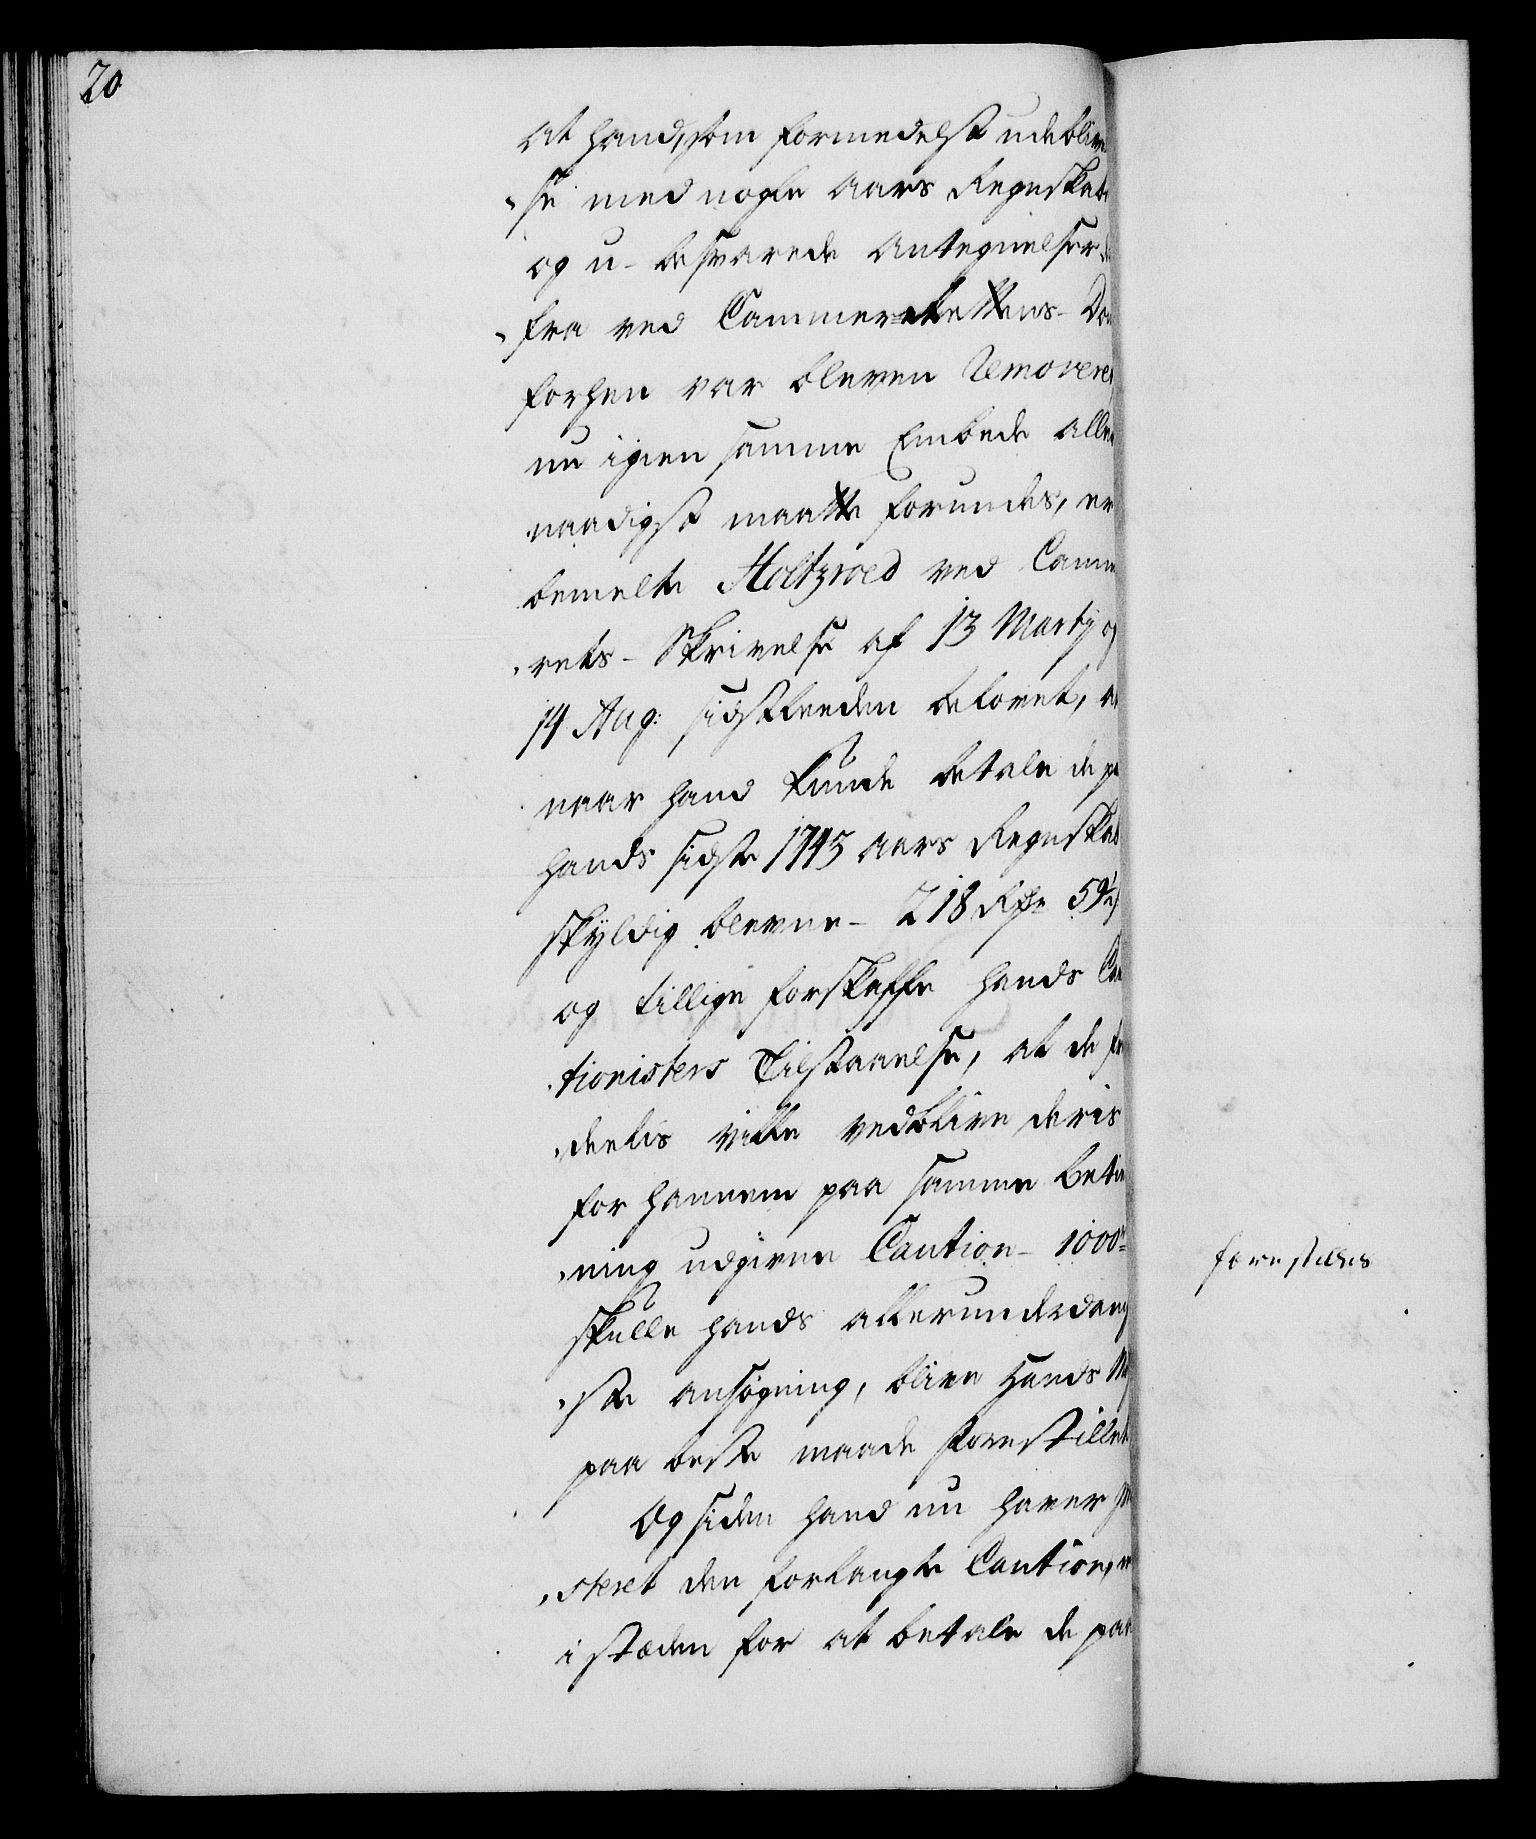 20
at hand, som formedelst udeblivel
se med nogle Aars Regnskab
og u-besvarede Antegnelser
fra ved Cammer-Rettens-Dom
forhen var bleven Removeret
nu igien samme Embede aller
naadigst maatte forundes, er
bemelte Holtzroed ved Camme
rets-Skrivelse af 13 Marty og
14 Aug: sidstleeden belovet, at
naar hand kunde betale de paa
hands sidste 1745 Aars Regnskab
skyldig blevne - 218 Rdr 59½
og tillige forskaffe hands Cau
tionisters Tilstaaelse, at de frem
deelis ville vedblive deris
for hannem paa samme betie
ning udgivne Caution - 1000
skulle hands allerunderdanig
ste ansøgning, blive Hands May
paa beste maade forestillet
Og siden hand nu haver præ
steret den forlangte Caution,
i stæden for at betale de paa
forestilles